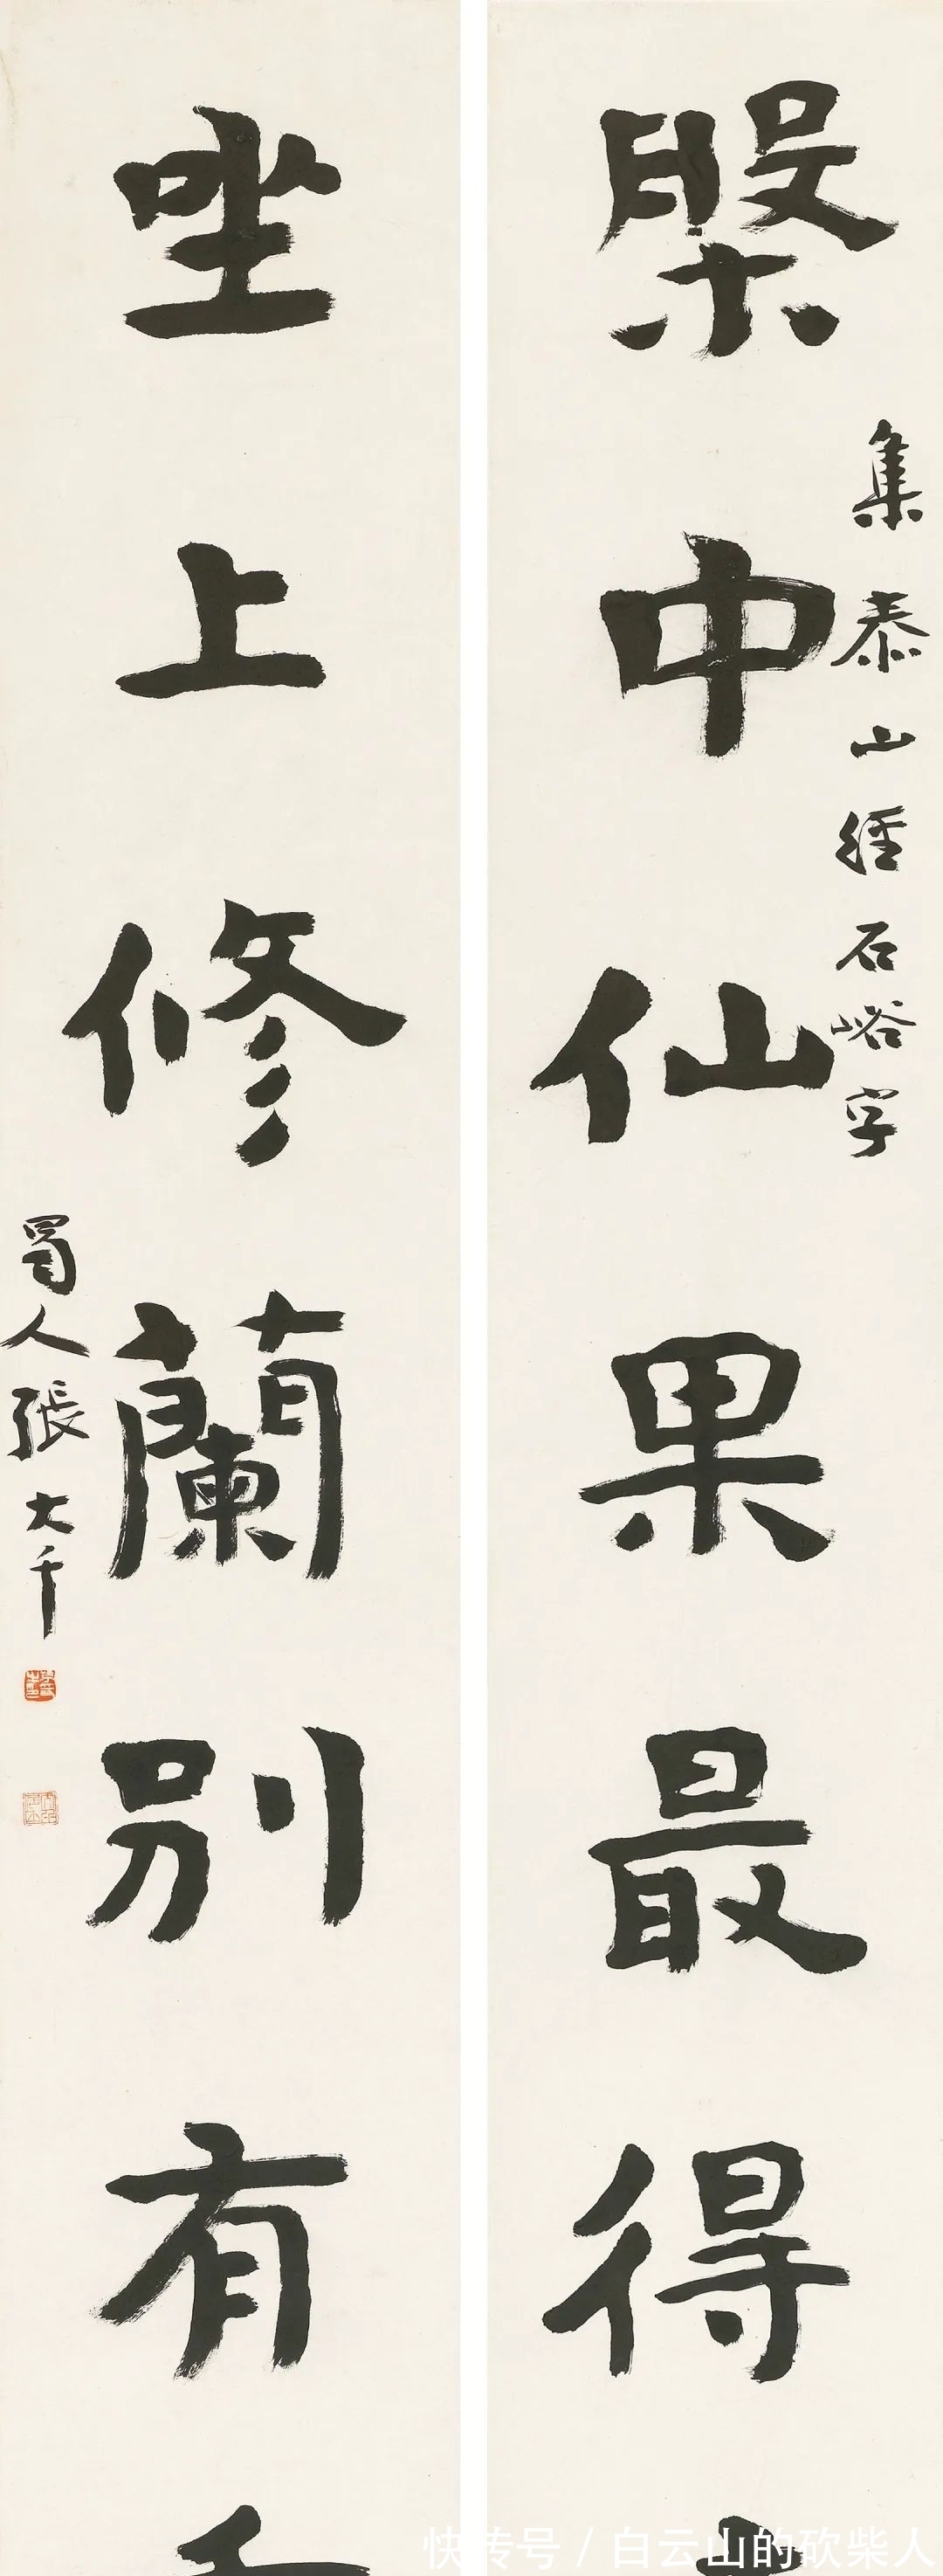 槃中仙果最得
集泰山經石峪字
坐上修蘭別有
蜀人張大千
快传号/白云山的砍柴人